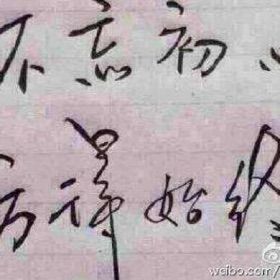 不忘初心
方得始终
weibo.com/